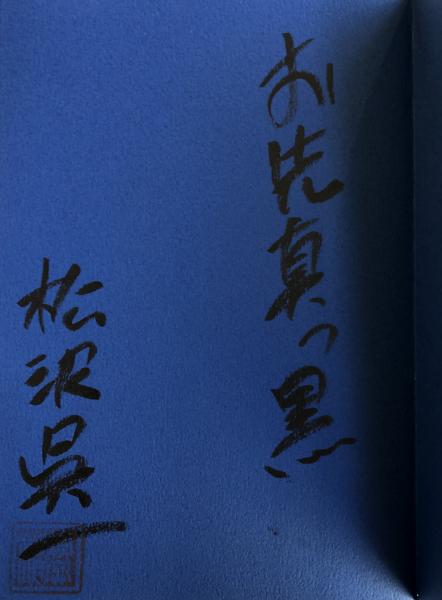 お先真っ黒
松沢呉一